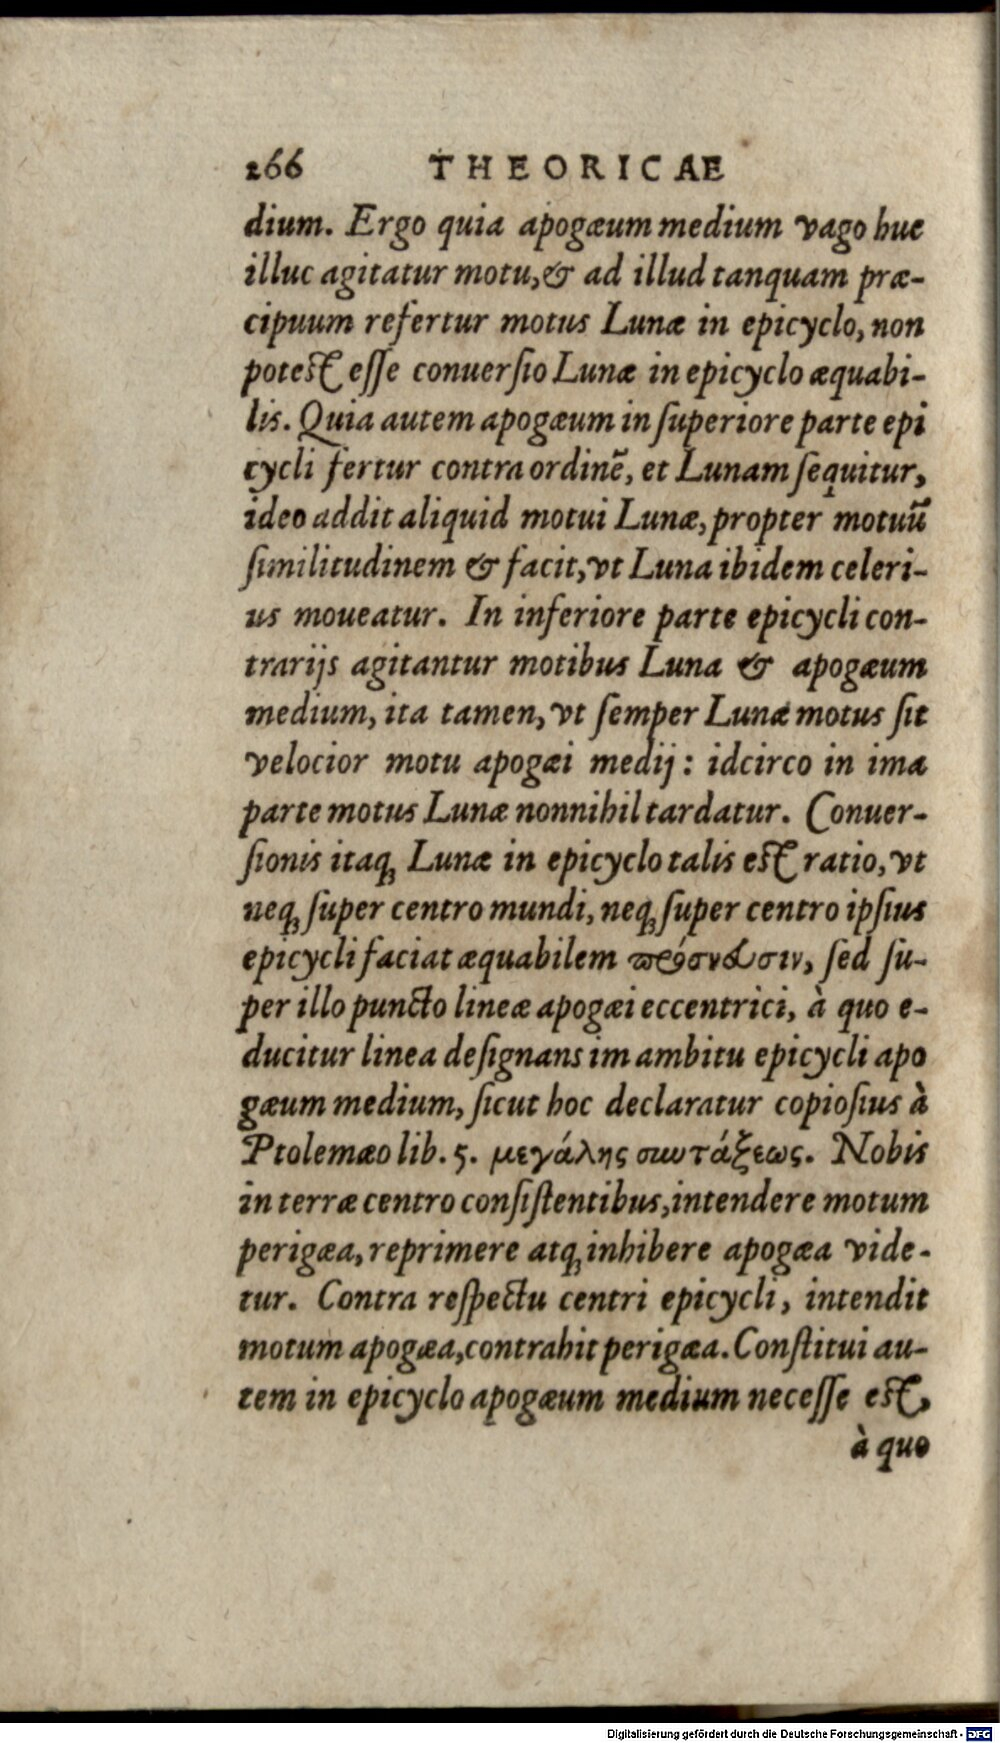 266 THEORICAE
dium. Ergo quia apogæum medium vago huc
illuc agitatur motu, & ad illud tanquam præ-
cipuum refertur motus Lunæ in epicyclo, non
potest esse conuersio Lunæ in epicyclo æquabi-
lis. Quia autem apogæum in superiore parte epi
cycli fertur contra ordinẽ, et Lunam sequitur,
ideo addit aliquid motui Lunæ, propter motuũ
similitudinem & facit, vt Luna ibidem celeri-
us moueatur. In inferiore parte epicycli con-
trarijs agitantur motibus Luna & apogæum
medium, ita tamen, vt semper Lunæ motus sit
velocior motu apogæi medij: idcirco in ima
parte motus Lunæ nonnihil tardatur. Conuer-
sionis itaq; Lunæ in epicyclo talis est ratio, vt
neq; super centro mundi, neq; super centro ipsius
epicycli faciat æquabilem πρόσνευσιν, sed su-
per illo puncto lineæ apogæi eccentrici, à quo e-
ducitur linea designans im ambitu epicycli apo
gæum medium, sicut hoc declaratur copiosius à
Ptolemæo lib. 5. μεγάλης συντάξεως. Nobis
in terræ centro consistentibus, intendere motum
perigæa, reprimere atq; inhibere apogæa vide-
tur. Contra respectu centri epicycli, intendit
motum apogæa, contrahit perigæa. Constitui au-
tem in epicyclo apogæum medium necesse est,
à quo
Digitalisierung gefördert durch die Deutsche Forschungsgemeinschaft - DFG